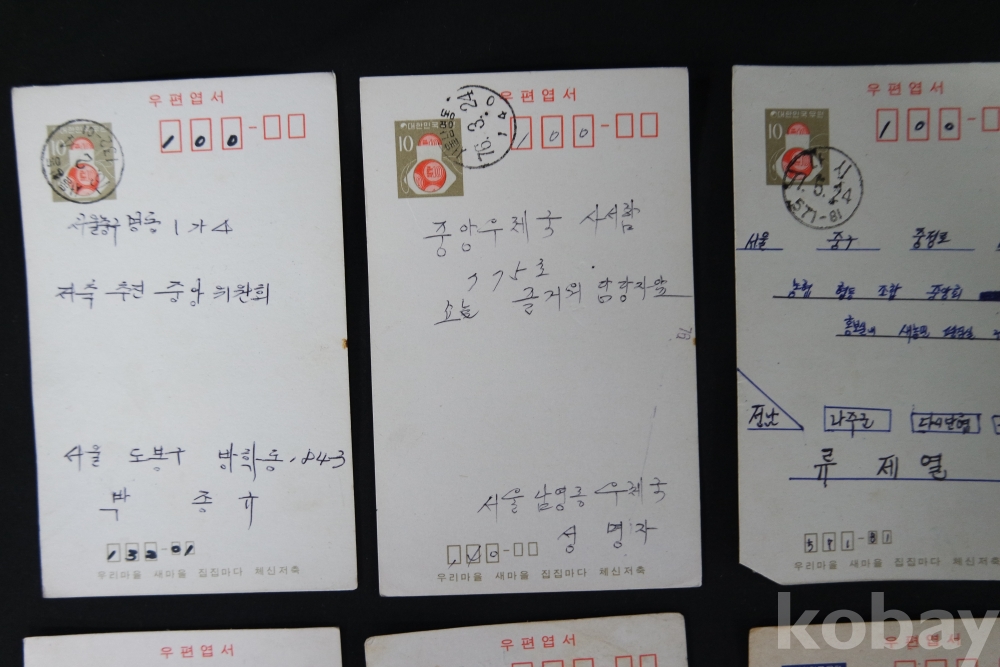 우편엽서
10
100-
서울 중구 명동 1가 4
저축 추진 중앙 위원회
서울 도봉구 방학동
박 종규
132-01
우리마을 새마을 집집마다 체신저축
우편엽서
대한민국우표
10
76.3.24
100-
중앙우체국 사서함
775호
오늘 즐거워 담당자앞
서울 남영동 우체국
성명자
140-
우리마을 새마을 집집마다 체신저축
우편엽서
대한민국우표
10
100-
5.24
571-81
서울 중구 충정로
농협 협동 조합 중앙회
홍보실내 새농민
전남 나주군
류 제 열
우리마을 새마을 집집마다 체신저축
우편엽서
우편엽서
우편엽서
kobay